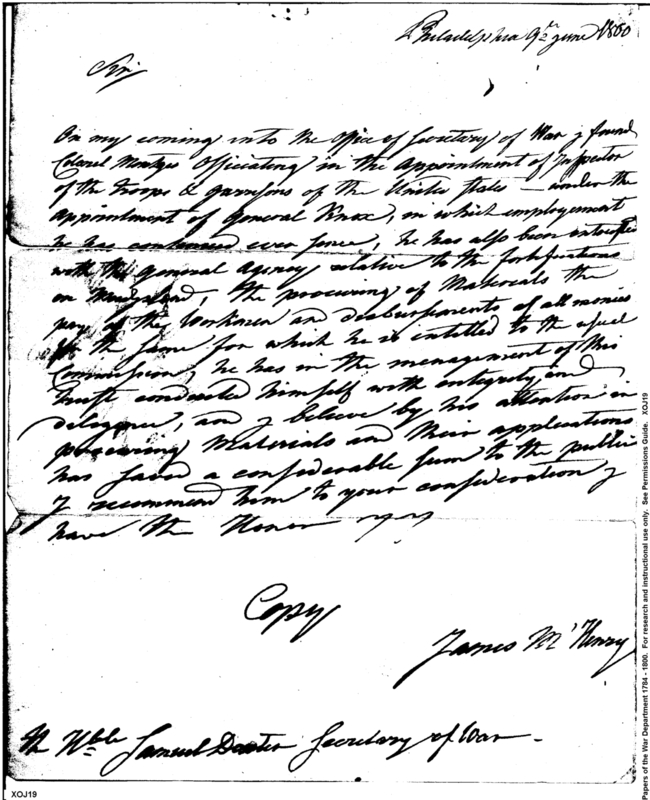 Philadelphia 9th June 1800
Sir,
On my coming into the Office of Secretary of War I found
Colonel Officiating in the Appointment of Inspector
of the Troops & garrisons of the United States – under the
Appointment of General Knox, in which employement
he has continued ever since, he has also been
with the general Agency relative to the fortifications
on the procuring of Materials the
pay of the Workmen and disbursments of all monies
for the same for which he is entitled to the usual
Commission, he has in the management of this
trust conducted himself with integrity and
delegence, and I believe by his attention in
procuring Materials and their applications
has saved a considerable sum to the public
I recommend him to your consideration I
have the Honor
Copy
James McHenry
Samuel Dexter Secretary of War -
XOJ19
Papers of the War Department 1784 - 1800. For research and instructional use only. See Permissions Guide. XOJ19